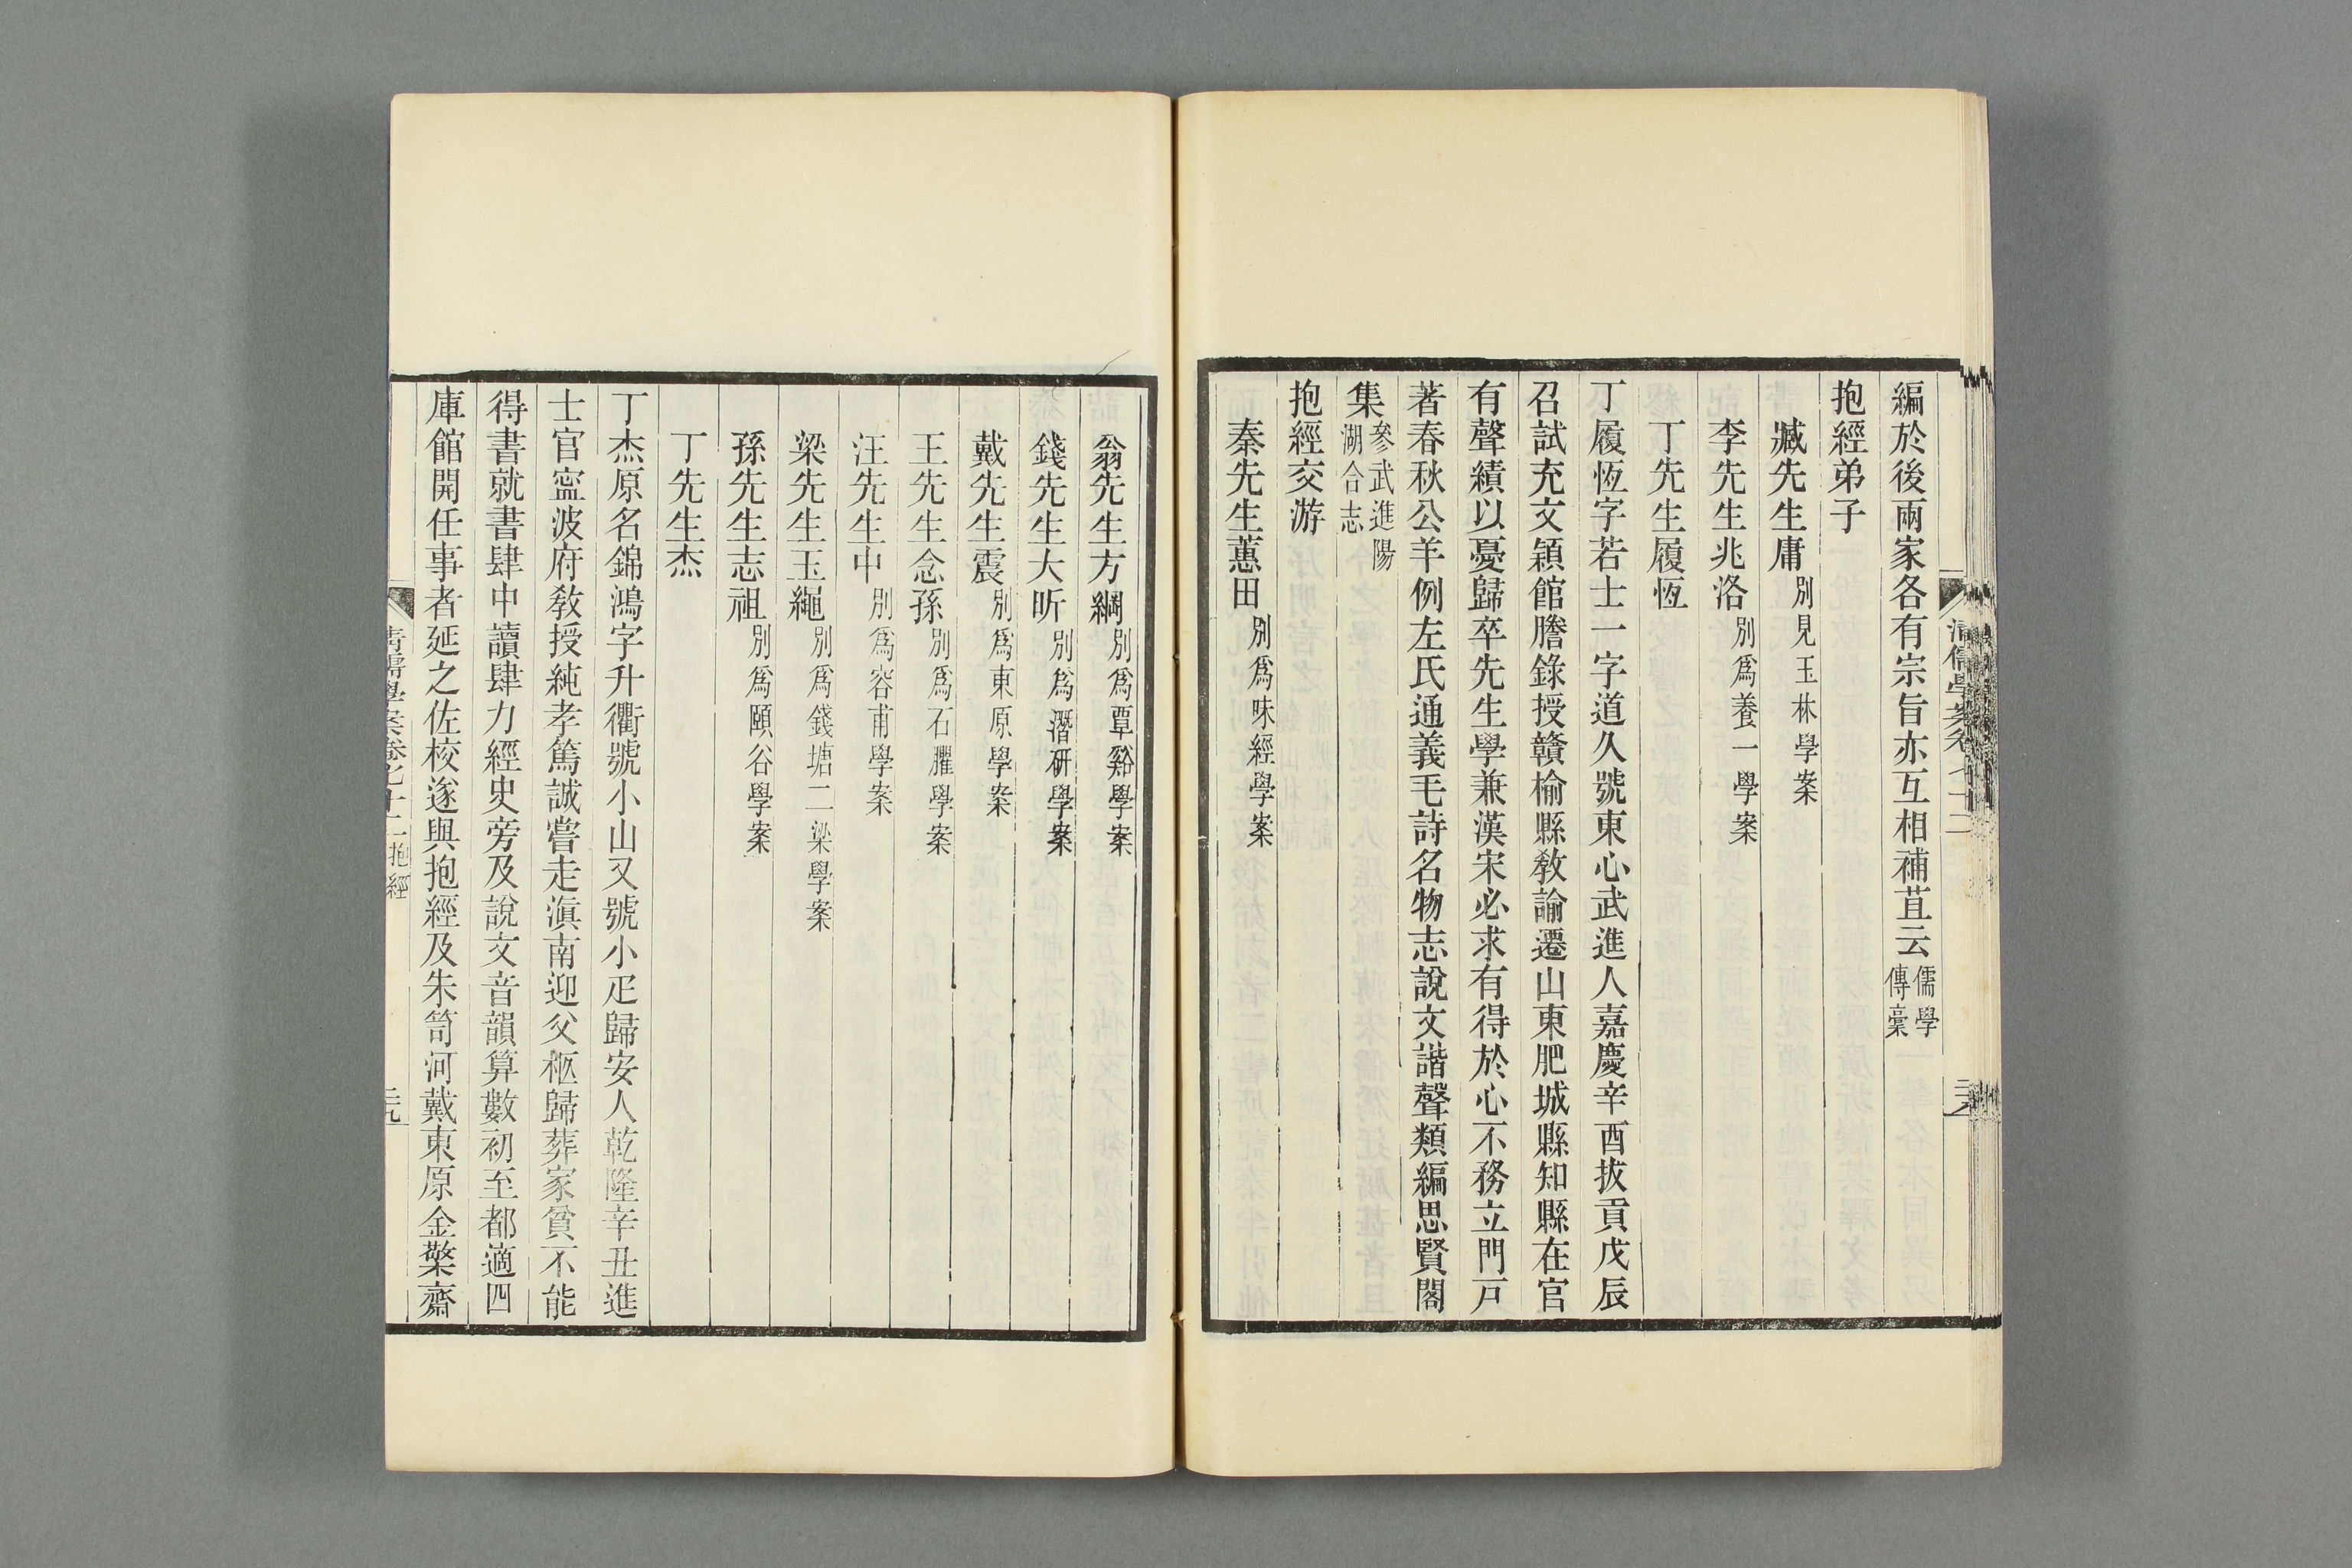 編於後兩家各有宗旨亦互相補苴云儒學傳稾
抱經弟子
臧先生庸別見玉林學案
李先生兆洛別爲養一學案
丁先生履恆
丁履恆字若士一字道久號東心武進人嘉慶辛酉拔貢戊辰
召試充文穎館謄錄授贛榆縣敎諭遷山東肥城縣知縣在官
有聲績以憂歸卒先生學兼漢宋必求有得於心不務立門戸
著春秋公羊例左氏通義毛詩名物志說文諧聲類編思賢閣
集參武進陽湖合志
抱經交游
秦先生蕙田別爲味經學案
翁先生方綱別爲覃谿學案
錢先生大昕別爲潛研學案
戴先生震別爲東原學案
王先生念孫別爲石臞學案
汪先生中別爲容甫學案
梁先生玉繩別爲錢塘二梁學案
孫先生志祖別爲頤谷學案
丁先生杰
丁杰原名錦鴻字升衢號小山又號小疋歸安人乾隆辛丑進
士官寍波府敎授純孝篤誠嘗走滇南迎父柩歸葬家貧不能
得書就書肆中讀肆力經史旁及說文音韻算數初至都適四
庫館開任事者延之佐校遂與抱經及朱笥河戴東原金檠齋
清儒學案卷七十二 抱經
二十九